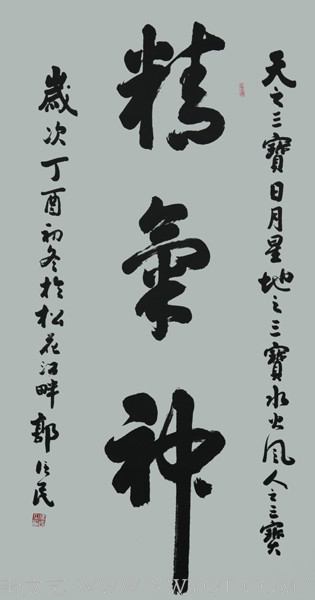 天之三寶日月星地之三寶水火風人之三寶
精氣神
歲次丁酉初冬於松花江畔郭信民